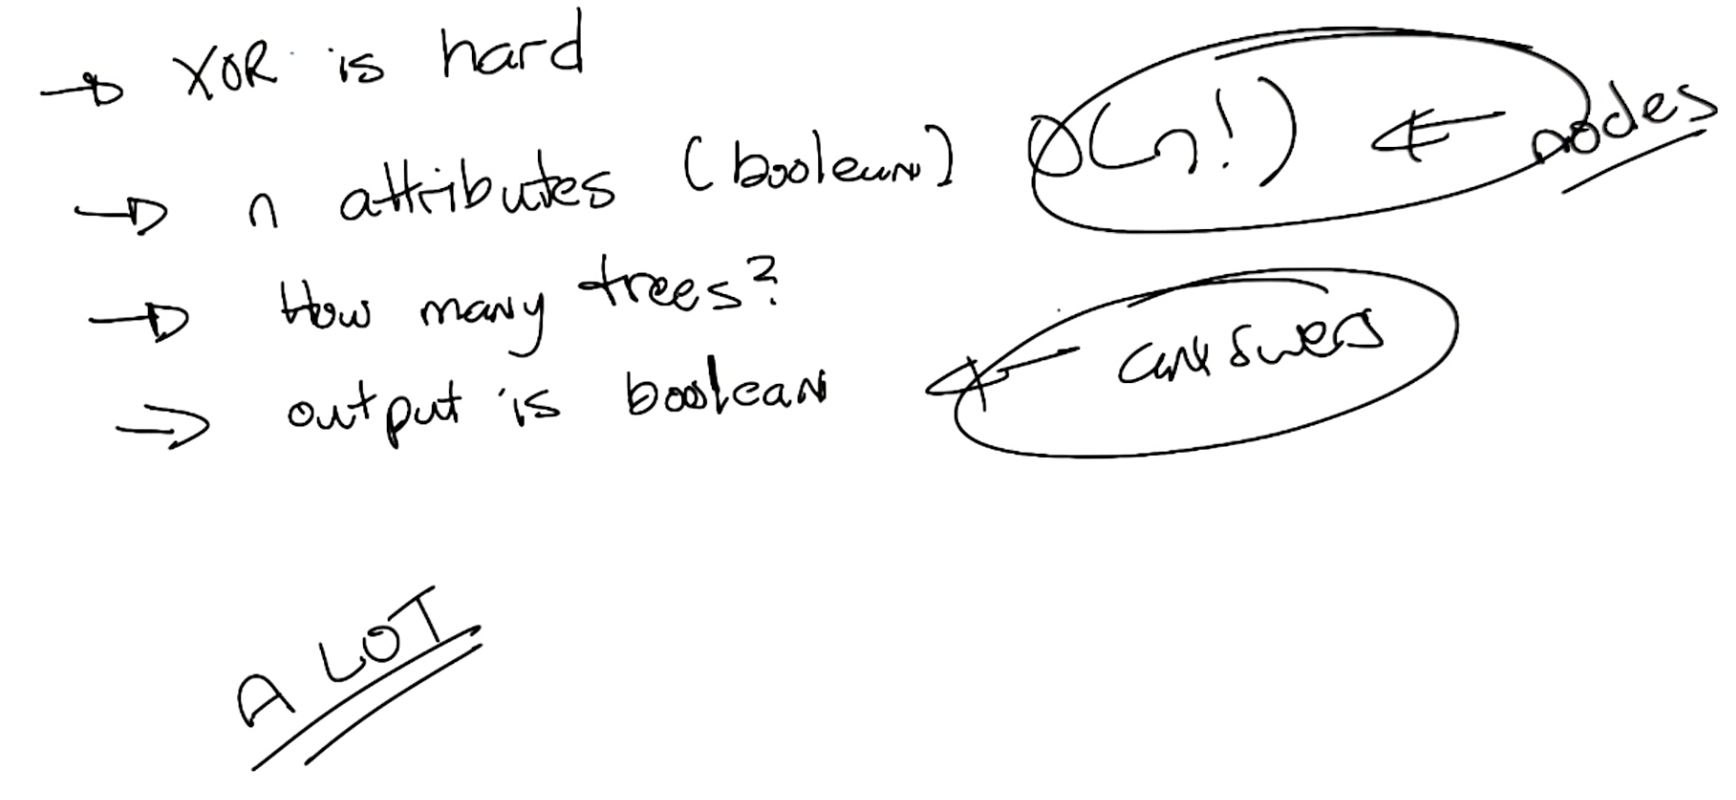 → XOR is hard
→ n attributes (boolean) O(n!) ← nodes
→ How many trees?
→ output is boolean ← answers
A LOT